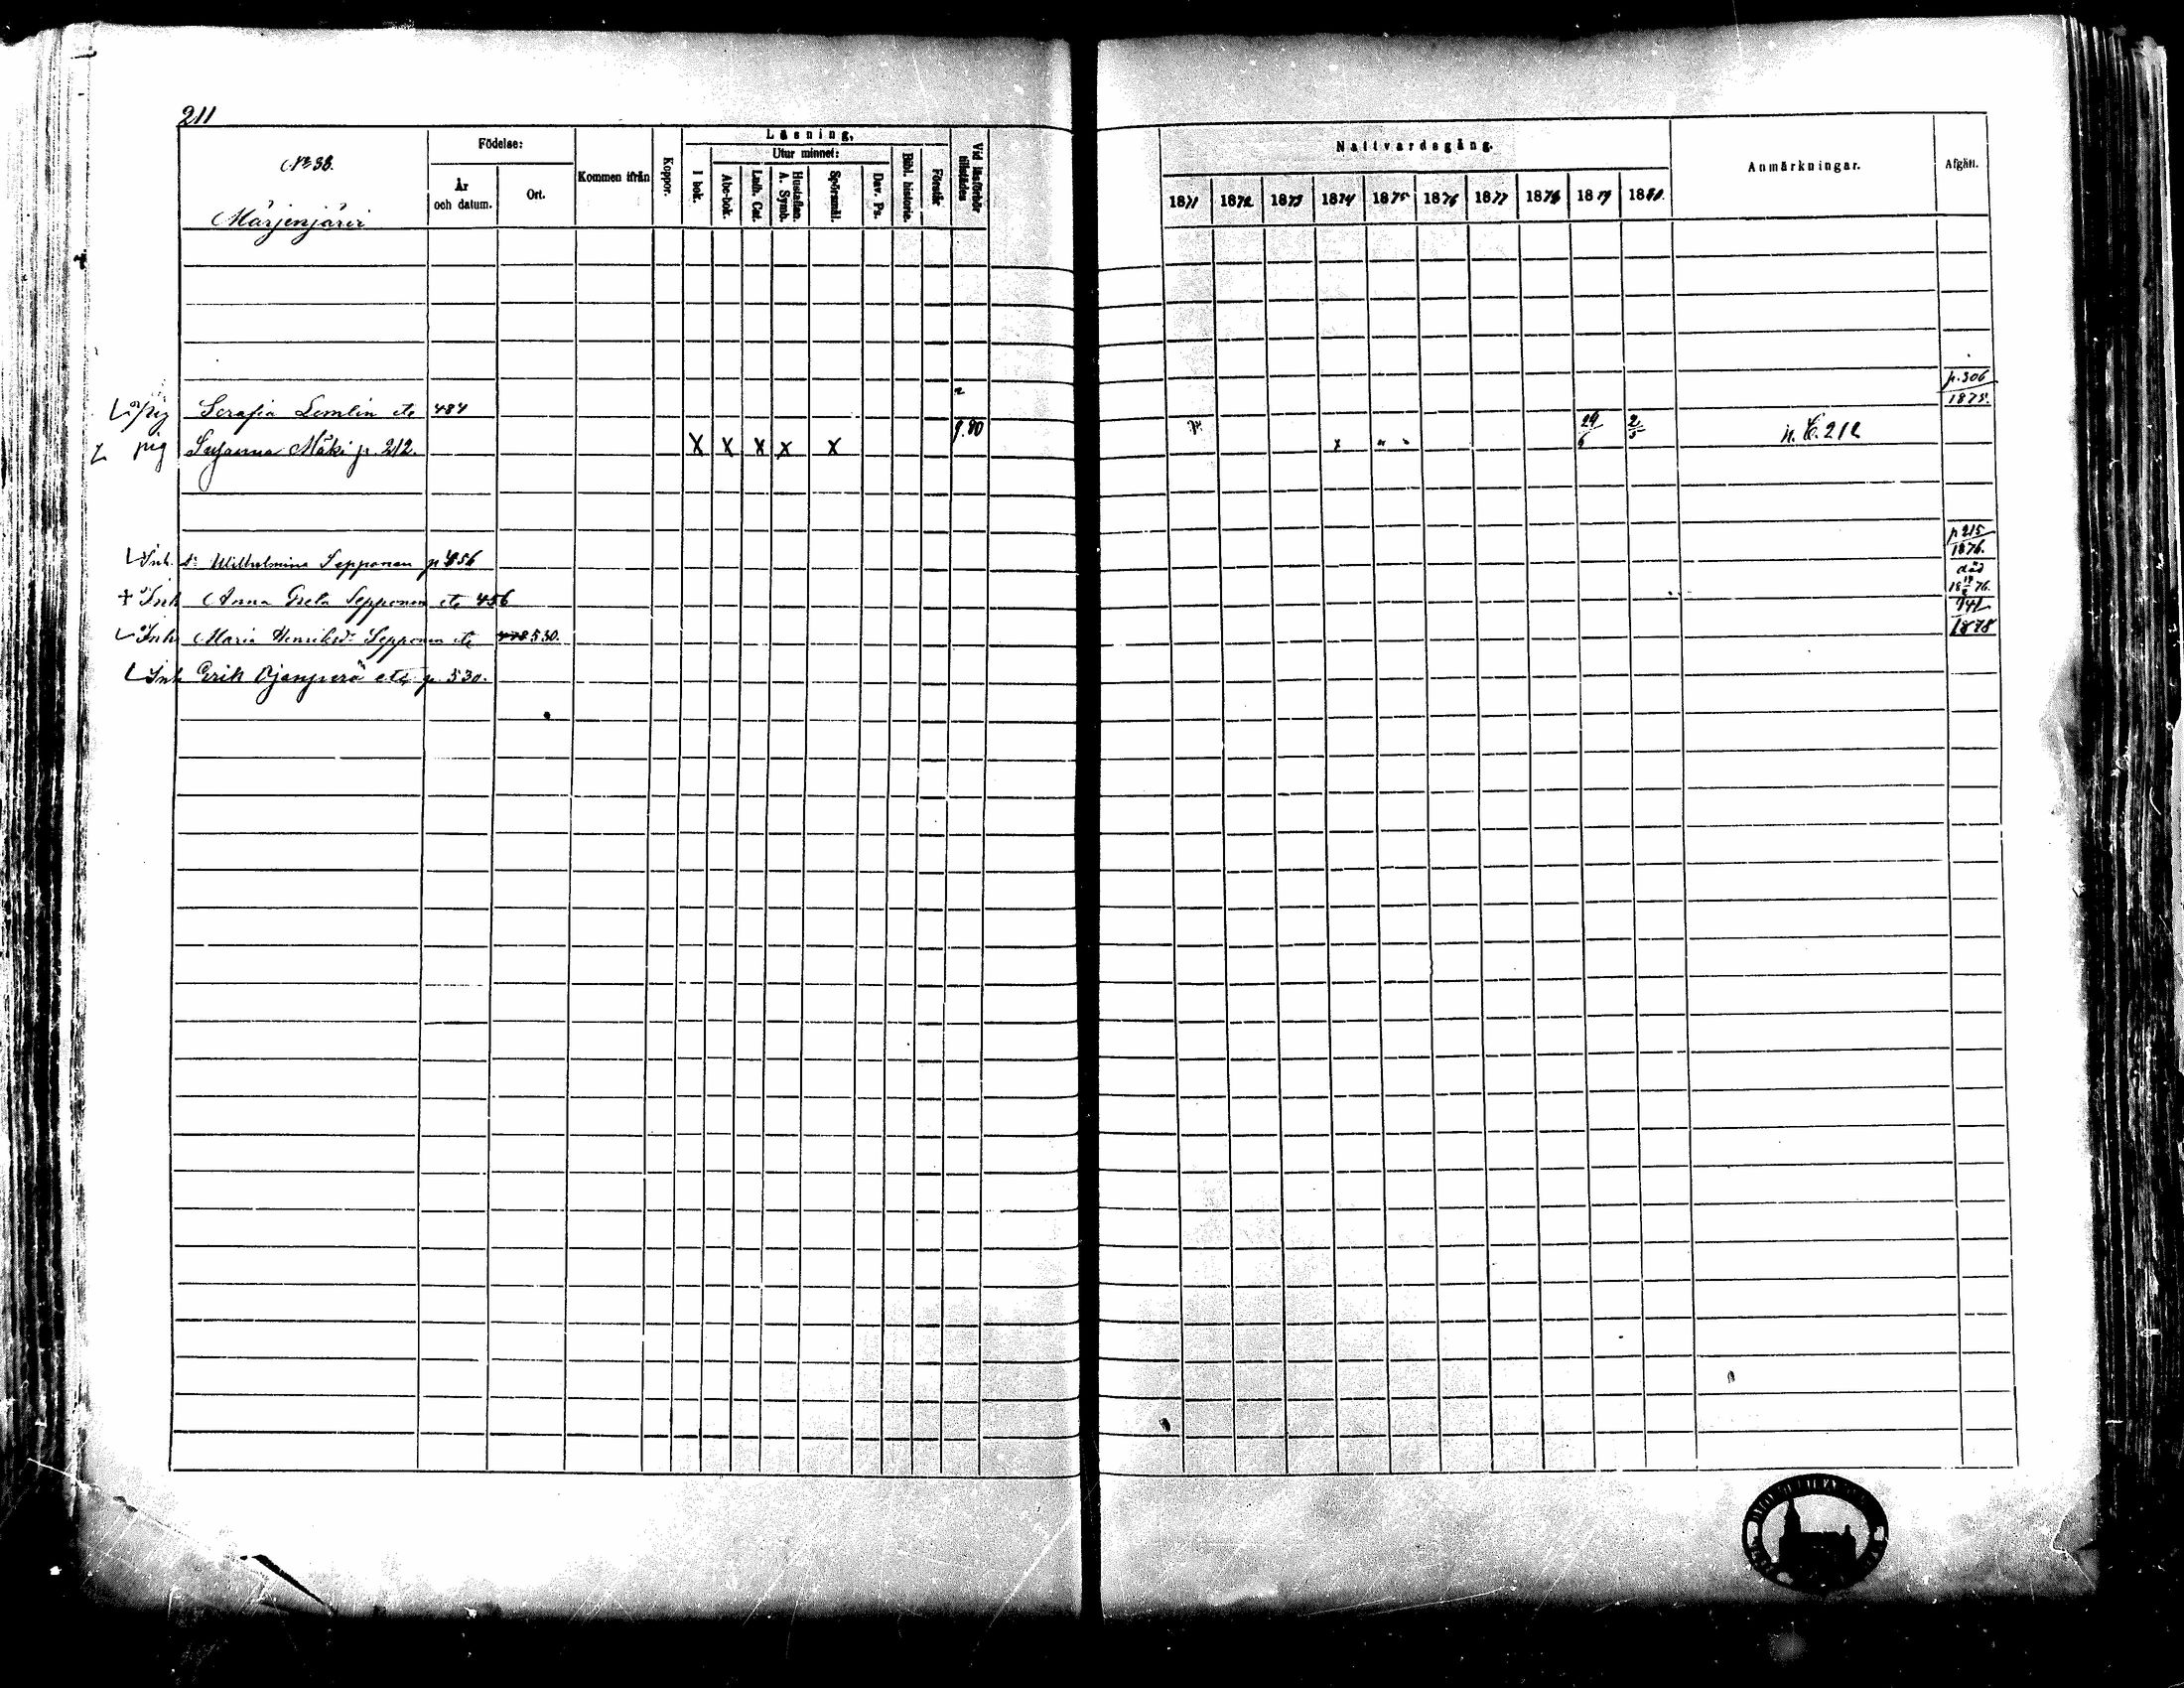 211
No 38.
Märjenjärvi
Födelse:
År och datum.
Ort.
Kommen ifrån
Koppor.
Läsning,
I bok.
Utur minnet:
Abc-bok.
Luth. Cat.
Hustaflan. A. Symb.
Spörsmål.
Dav. Ps.
Bibl. historie.
Förstår
Vid läsförhör tillstädes
Nattvardsgång.
1871 1872 1873 1874 1875 1876 1877 1878 1879 1880.
Anmärkningar.
Afgått.
p. 306
1878.
pig Serafia Lemlin etc 484
pig Susanna Mäki p. 212. X X X X X 9.80 x 29/6 2/5 n. C. 212
p 215
1876.
Inh. Wilhelmina Sepponen p 456
död
+ Inh Anna Greta Sepponen etc 456 18 76.
741
Inh Maria Henriksdr Sepponen etc 478 530. 1878
Inh Erik Ojanperä etc p. 530.